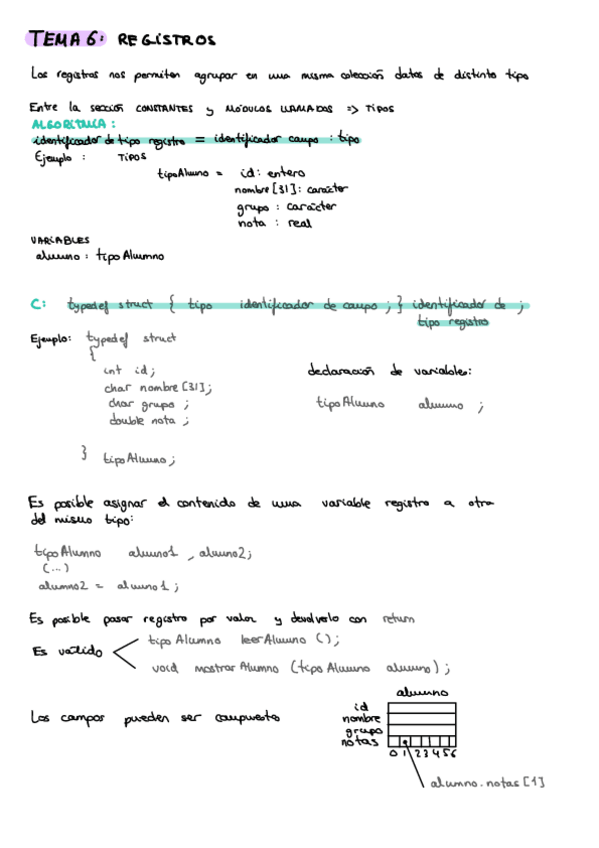 TEMA 6: REGISTROS
Los registros nos permiten agrupar en una misma colección datos de distinto tipo
Entre la sección CONSTANTES y MÓDULOS LLAMADOS => TIPOS
ALGORÍTMIA:
identificador de tipo registro = identificador campo : tipo
Ejemplo : TIPOS
tipoAlumno = id: entero
nombre [31]: carácter
grupo : carácter
nota : real
VARIABLES
alumno : tipo Alumno
C: typedef struct { tipo identificador de campo ; } identificador de ;
tipo registro
Ejemplo: typedef struct
{
int id;
char nombre [31];
char grupo ;
double nota ;
} tipoAlumno;
declaración de variables:
tipoAlumno alumno ;
Es posible asignar el contenido de una variable registro a otra
del mismo tipo:
tipo Alumno alumno1 , alumno2;
(...)
alumno2 = alumno1;
Es posible pasar registro por valor y devolverlo con return
Es válido
tipo Alumno leerAlumno ();
void mostrar Alumno (tipo Alumno alumno);
Los campos pueden ser compuesto
alumno
id
nombre
grupo
notas
0 1 2 3 4 5 6
alumno.notas [1]